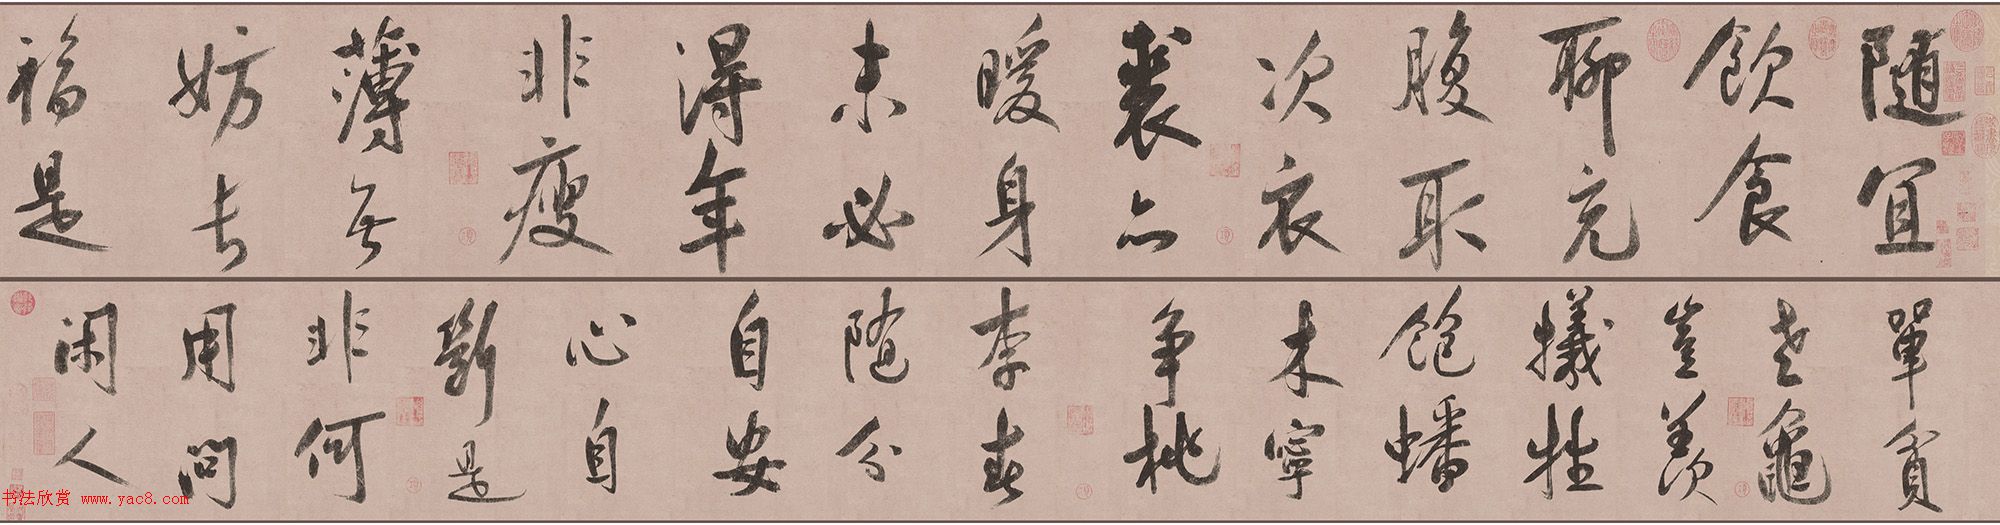 随宜
飲食
聊充
腹取
次衣
裘亦
暖身
未必
得年
非瘦
薄无
妨長
福是
單貧
老龜
豈羨
犧牲
飽蟠
木寧
争桃
李春
随分
自安
心自
斷是
非何
用問
閑人
书法欣赏 www.yac8.com